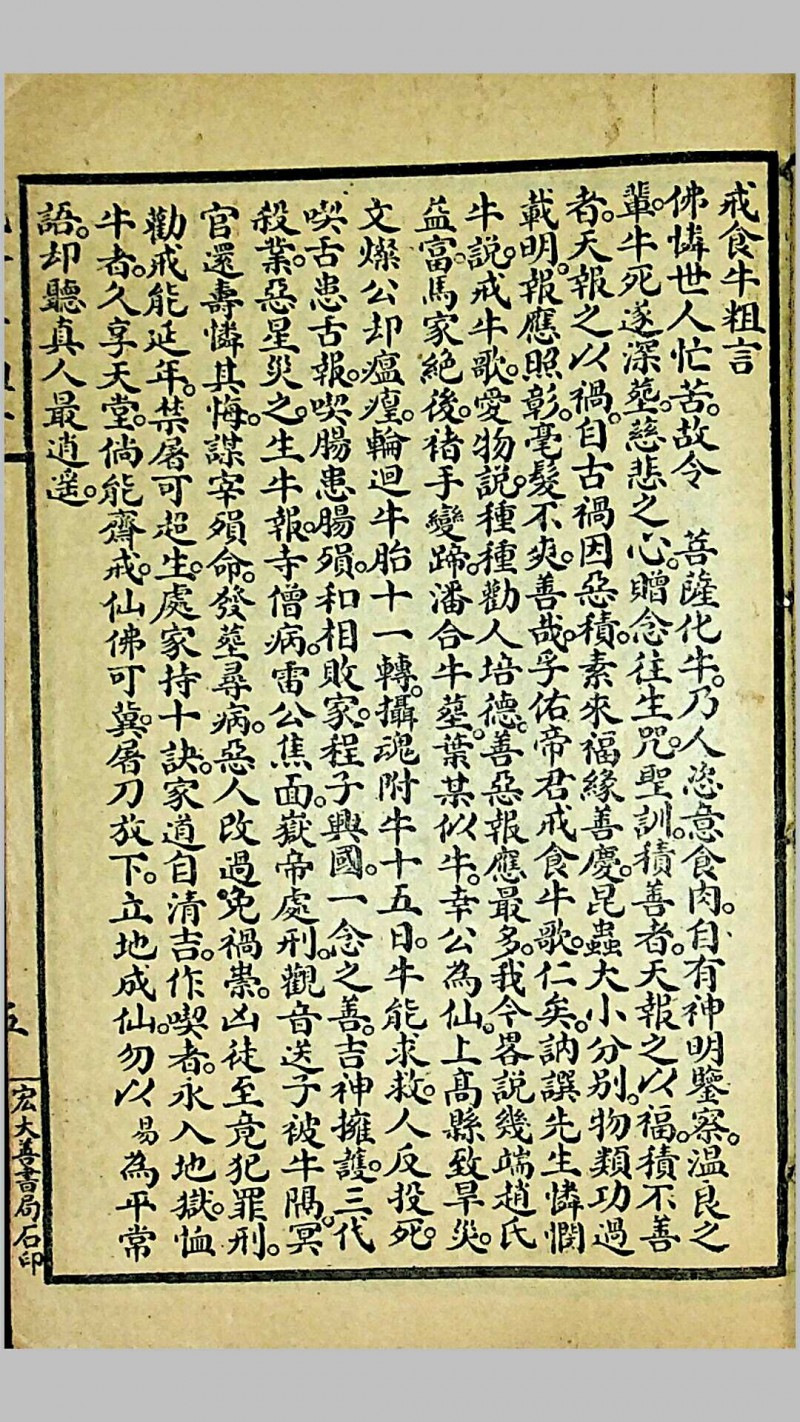 戒食牛粗言
佛憐世人忙苦。故令　菩薩化牛。乃人恣意食肉。自有神明鑒察。溫良之
輩。牛死遂深塟。慈悲之心。贈念往生咒。聖訓。積善者。天報之以福。積不善
者。天報之以禍。自古禍因惡積。素來福緣善慶。昆蟲大小分別。物類功過
載明。報應照彰。毫髮不爽。善哉。孚佑帝君戒食牛歌。仁矣。訥譔先生憐憫
牛說。戒牛歌。愛物說。種種勸人培德。善惡報應最多。我今畧說幾端。趙氏
益富。馬家絕後。禇手變蹄。潘合牛塟。葉某似牛。幸公為仙。上髙縣致旱災。
文燦公却瘟㾮。輪迴牛胎十一轉。攝魂附牛十五日。牛能求救。人反投死。
喫古患古報。喫腸患腸殞。和相敗家。程子興國。一念之善。吉神擁護。三代
殺業。惡星災之。生牛報。寺僧病。雷公焦面。嶽帝處刑。觀音送子被牛隔。冥
官還壽憐其悔。謀宰殞命。發塟尋病。惡人改過免禍祟。凶徒至竟犯罪刑。
勸戒能延年。禁屠可超生。處家持十訣。家道自清吉。作喫者。永入地獄。恤
牛者。久享天堂。倘能齋戒。仙佛可冀。屠刀放下。立地成仙。勿以易為平常
語。却聽真人最逍遙。
五
宏大善書局石印